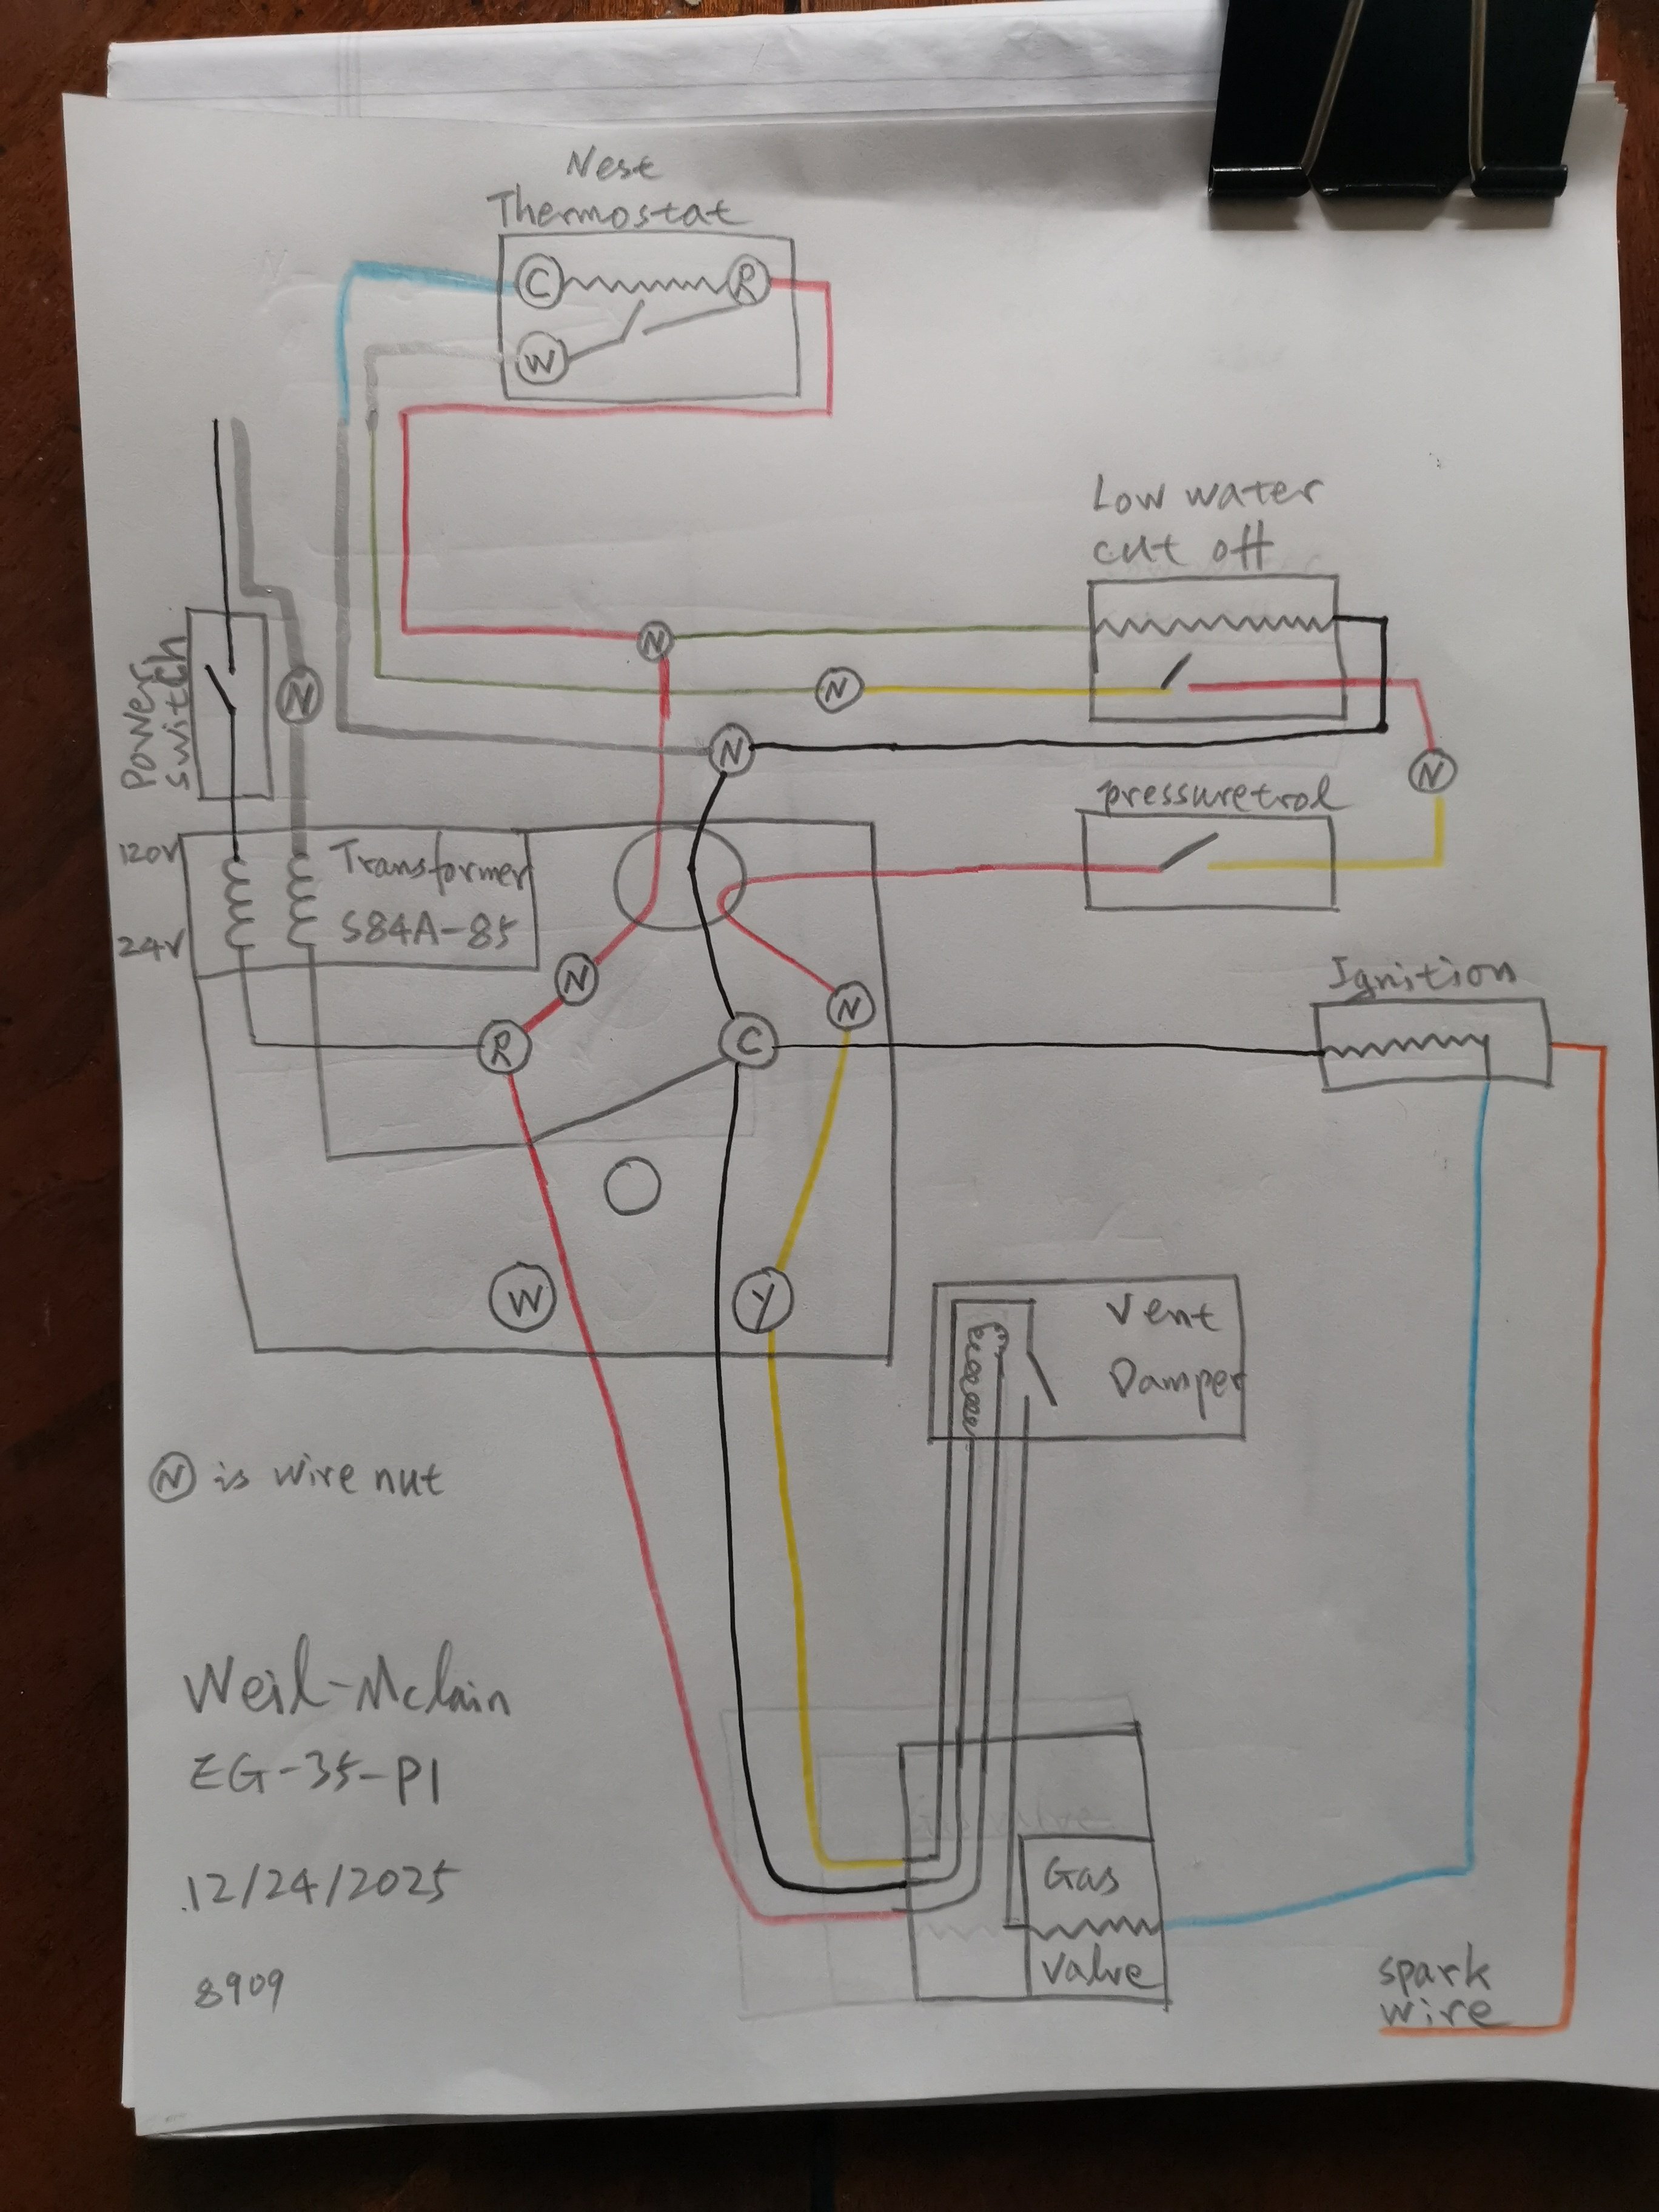 Nest
Thermostat
C R
W
Low water
cut off
Power
Switch
N
N
N
N
N
pressuretrol
120V
24V
Transformer
S84A-85
N
N
R
C
Ignition
W
Y
Vent
Damper
N is wire nut
Weil-Mclain
EG-35-PI
12/24/2025
8909
Gas
Valve
spark
wire